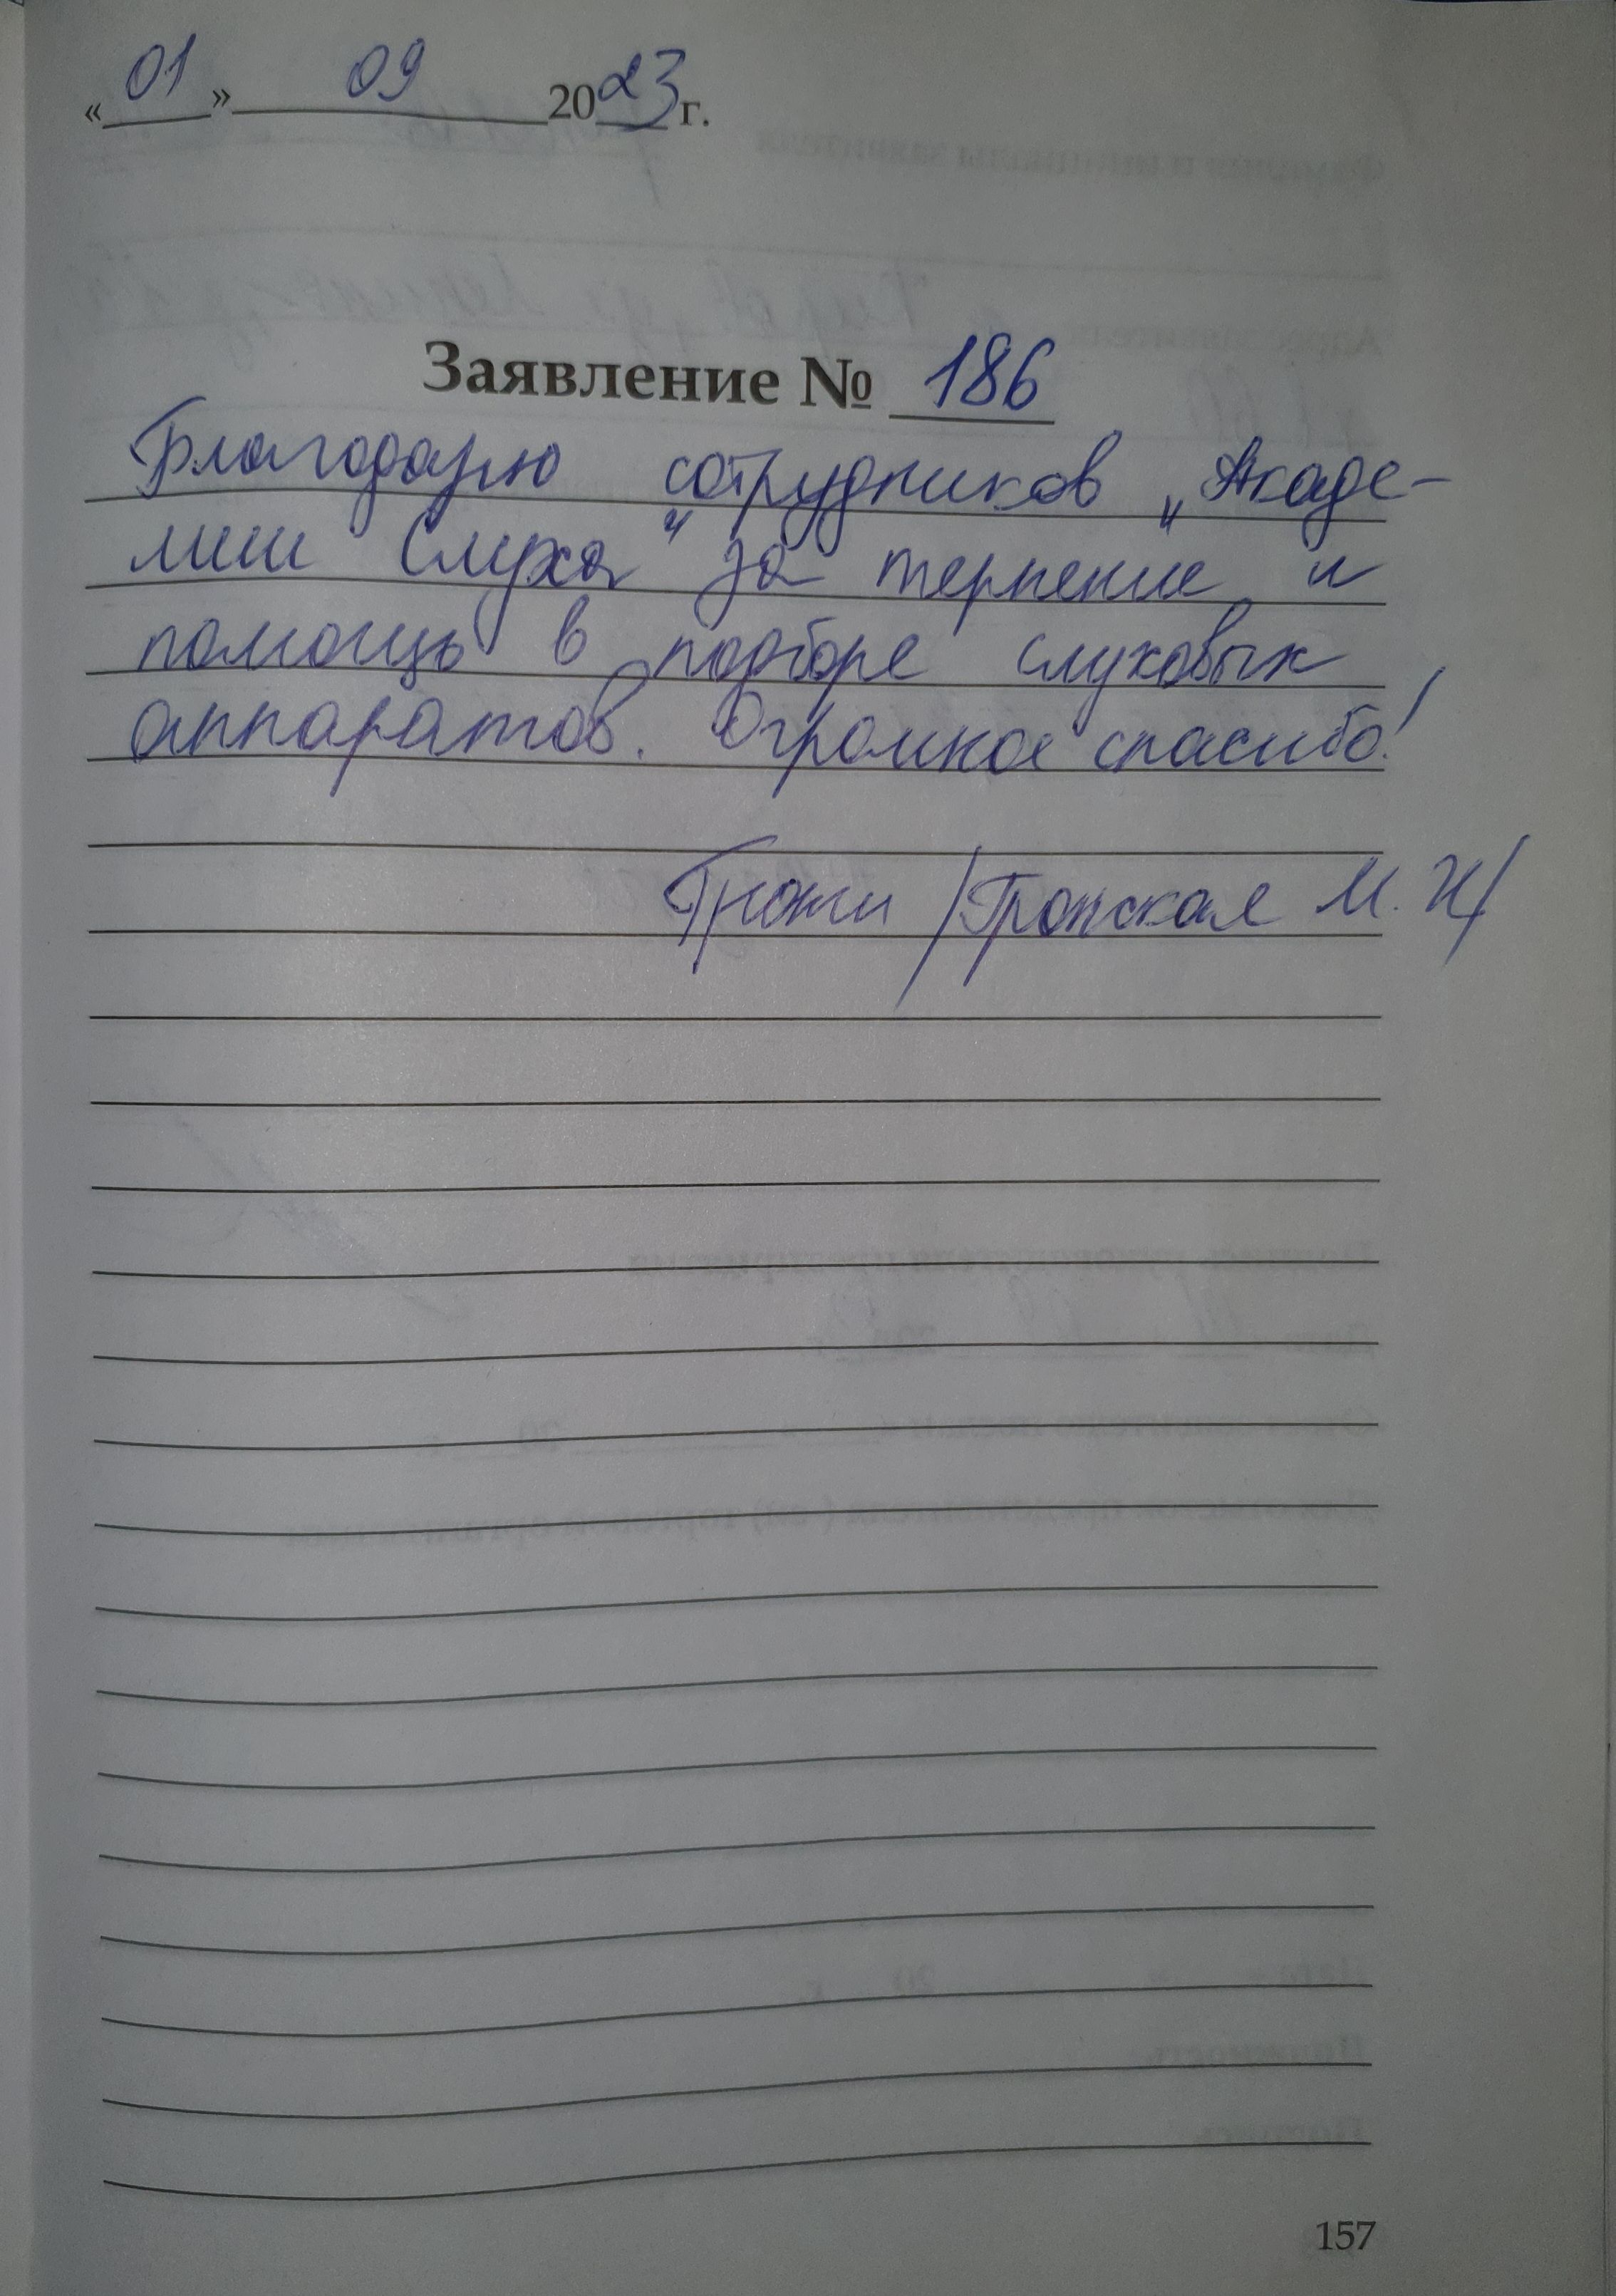 «01» 09 2023 г.
Заявление № 186
Благодарю сотрудников „Акаде-
мии Слуха" за терпение и
помощь в подборе слуховых
аппаратов. Огромное спасибо!
М. И/
157